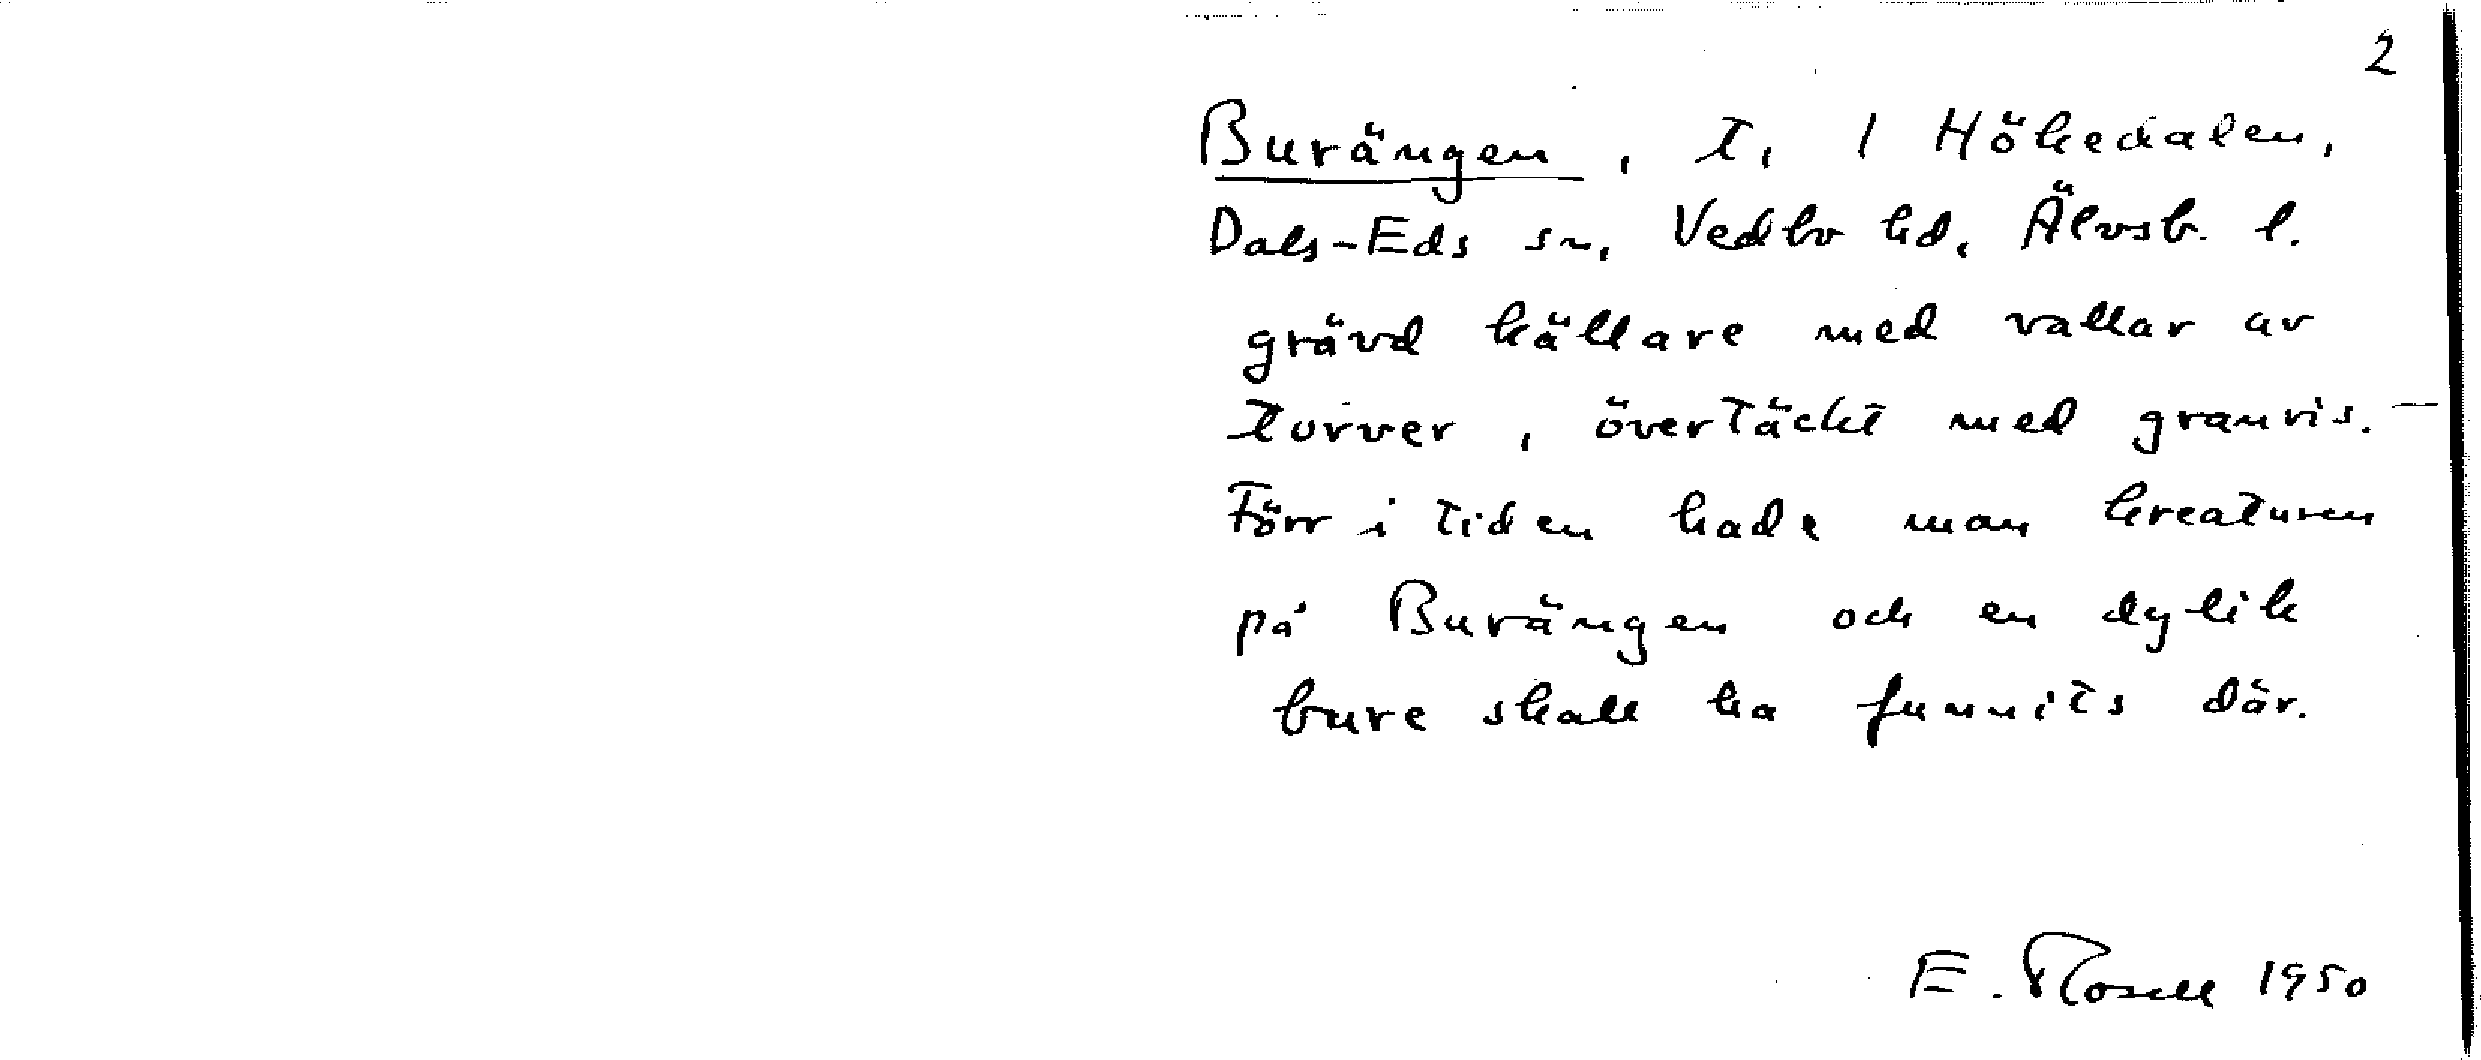 2
Burängen, t, 1 Hökedalen,
Dals-Eds sn, Vedbo hd, Älvsb. l.
grävd källare med vallar av
torver, övertäckt med granris. —
Förr i tiden hade man kreaturen
på Burängen och en dylik
bure skall ha funnits där.
E. Rosell 1950